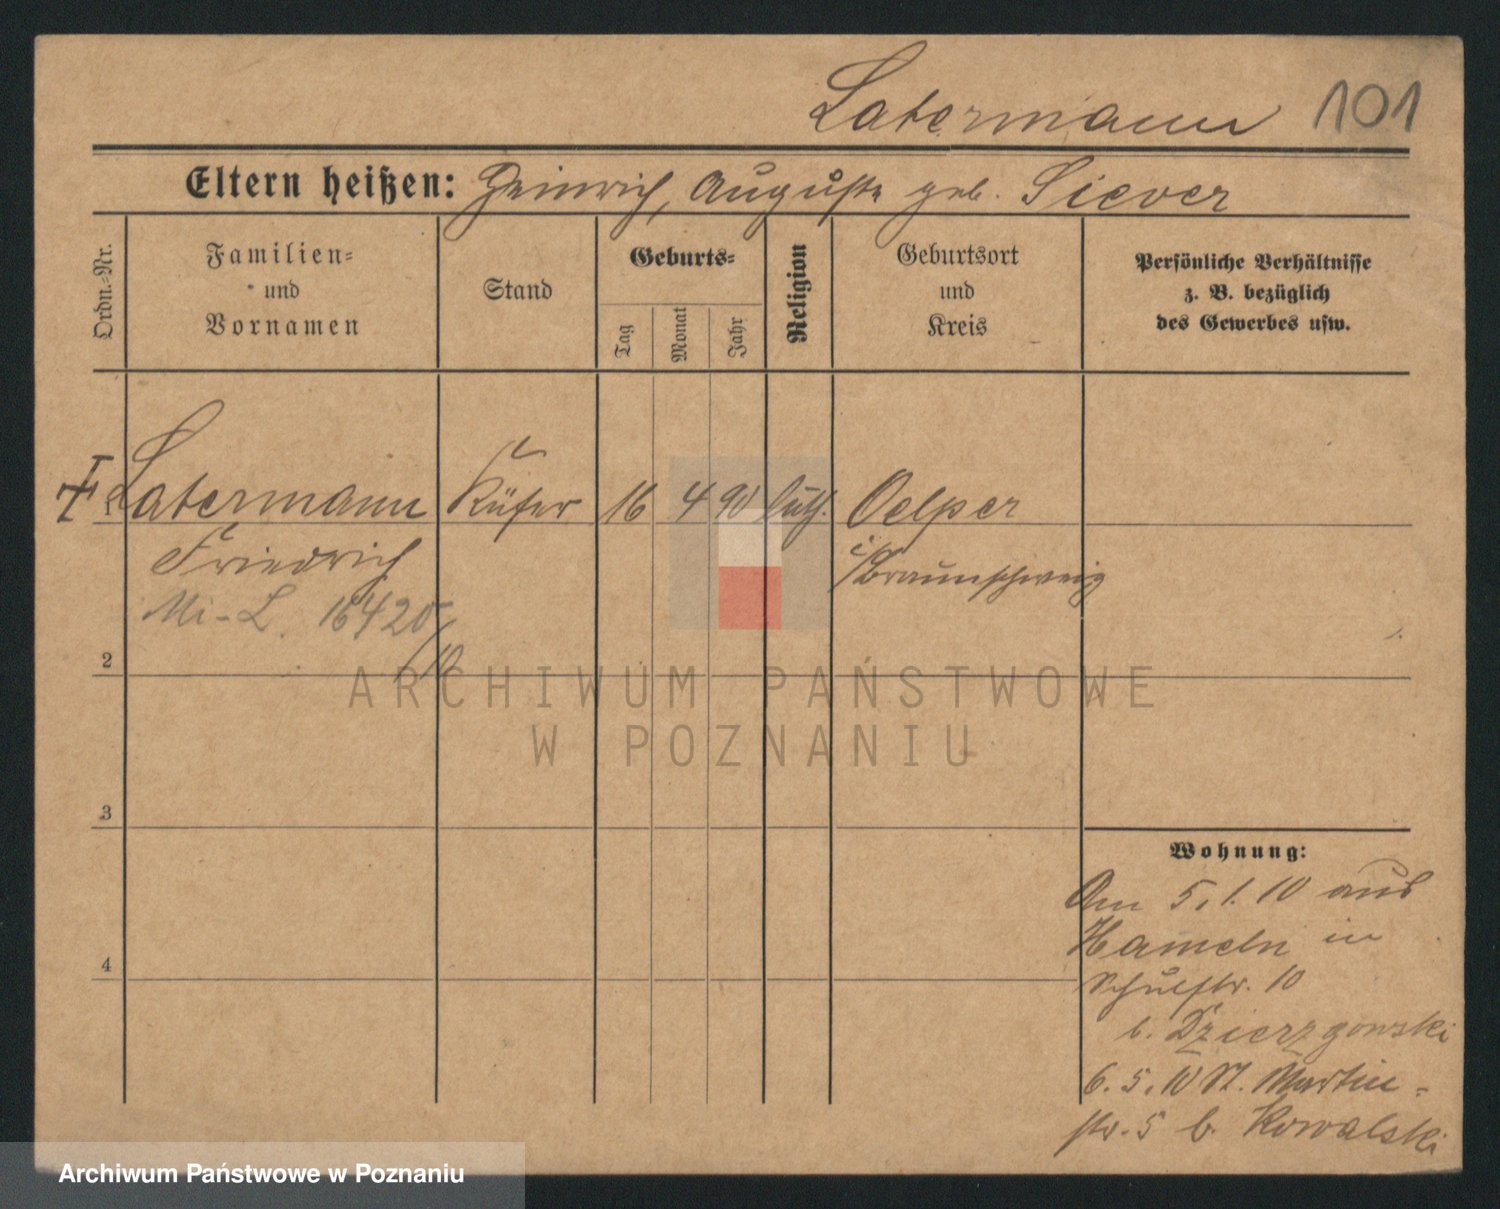 Latermann 101
Eltern heißen: Heinrich, Auguste geb. Siever
Ordn.-Nr.
Familien-
und
Vornamen
Stand
Geburts-
Tag
Monat
Jahr
Religion
Geburtsort
und
Kreis
Persönliche Verhältnisse
z. B. bezüglich
des Gewerbes usw.
Latermann Küfer 16 4 90 luth. Oelper
Friedrich i/Braunschweig
Mi-L. 16420/10
2
3
4
Wohnung:
Am 5.1.10 aus
Hameln in
Schulstr. 10
b. Dzierzgowski
6.5.10 St. Martin-
str. 5 b. Kowalski
ARCHIWUM PAŃSTWOWE
W POZNANIU
Archiwum Państwowe w Poznaniu